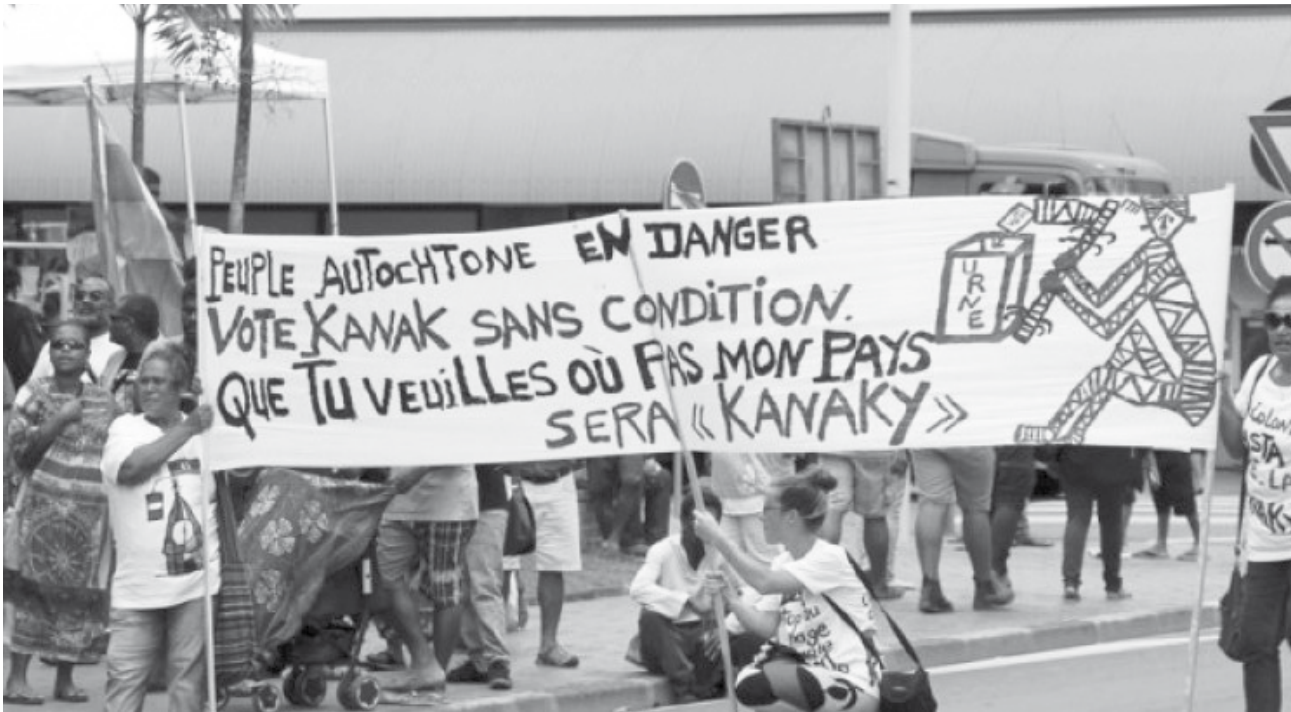 PEUPLE AUTOCHTONE EN DANGER
VOTE KANAK SANS CONDITION.
QUE TU VEUILLES OÙ PAS MON PAYS
SERA « KANAKY »
URNE